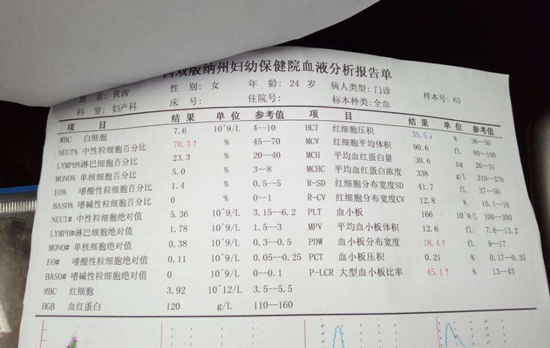 西双版纳州妇幼保健院血液分析报告单
姓 名: 黄茜 性 别: 女 年 龄: 24 岁 病人类型: 门诊 样本号: 63
科 室: 妇产科 床 号: 住院号: 标本种类: 全血
项 目 结 果 单 位 参考值 项 目 结 果 单 位 参考值
WBC 白细胞 7.6 10^9/L 4--10 HCT 红细胞压积 35.5↓ % 36--50
NEUT% 中性粒细胞百分比 70.3↑ % 45--70 MCV 平均红细胞体积 90.6 fL 80--100
LYMPH% 淋巴细胞百分比 23.3 % 20--40 MCH 平均血红蛋白量 30.6 pg 26--31
MONO% 单核细胞百分比 5.0 % 3--8 MCHC 平均血红蛋白浓度 338 g/L 310--370
EO% 嗜酸性粒细胞百分比 1.4 % 0.5--5 R-SD 红细胞分布宽度SD 41.7 fL 37--50
BASO% 嗜碱性粒细胞百分比 0 % 0--1 R-CV 红细胞分布宽度CV 12.8 % 10.1--16
NEUT# 中性粒细胞绝对值 5.36 10^9/L 3.15--6.2 PLT 血小板 166 10^9/L 100--300
LYMPH# 淋巴细胞绝对值 1.78 10^9/L 1.5--3 MPV 平均血小板体积 12.6 fL 7.6--13.2
MONO# 单核细胞绝对值 0.38 10^9/L 0.3--0.5 PDW 血小板分布宽度 18.4↑ fL 9--17
EO# 嗜酸性粒细胞绝对值 0.11 10^9/L 0.05--0.25 PCT 血小板压积 0.21 % 0.17--0.35
BASO# 嗜碱性粒细胞绝对值 0 10^9/L 0--0.1 P-LCR 大型血小板比率 45.1↑ % 13--43
RBC 红细胞 3.92 10^12/L 3.5--5.5
HGB 血红蛋白 120 g/L 110--160